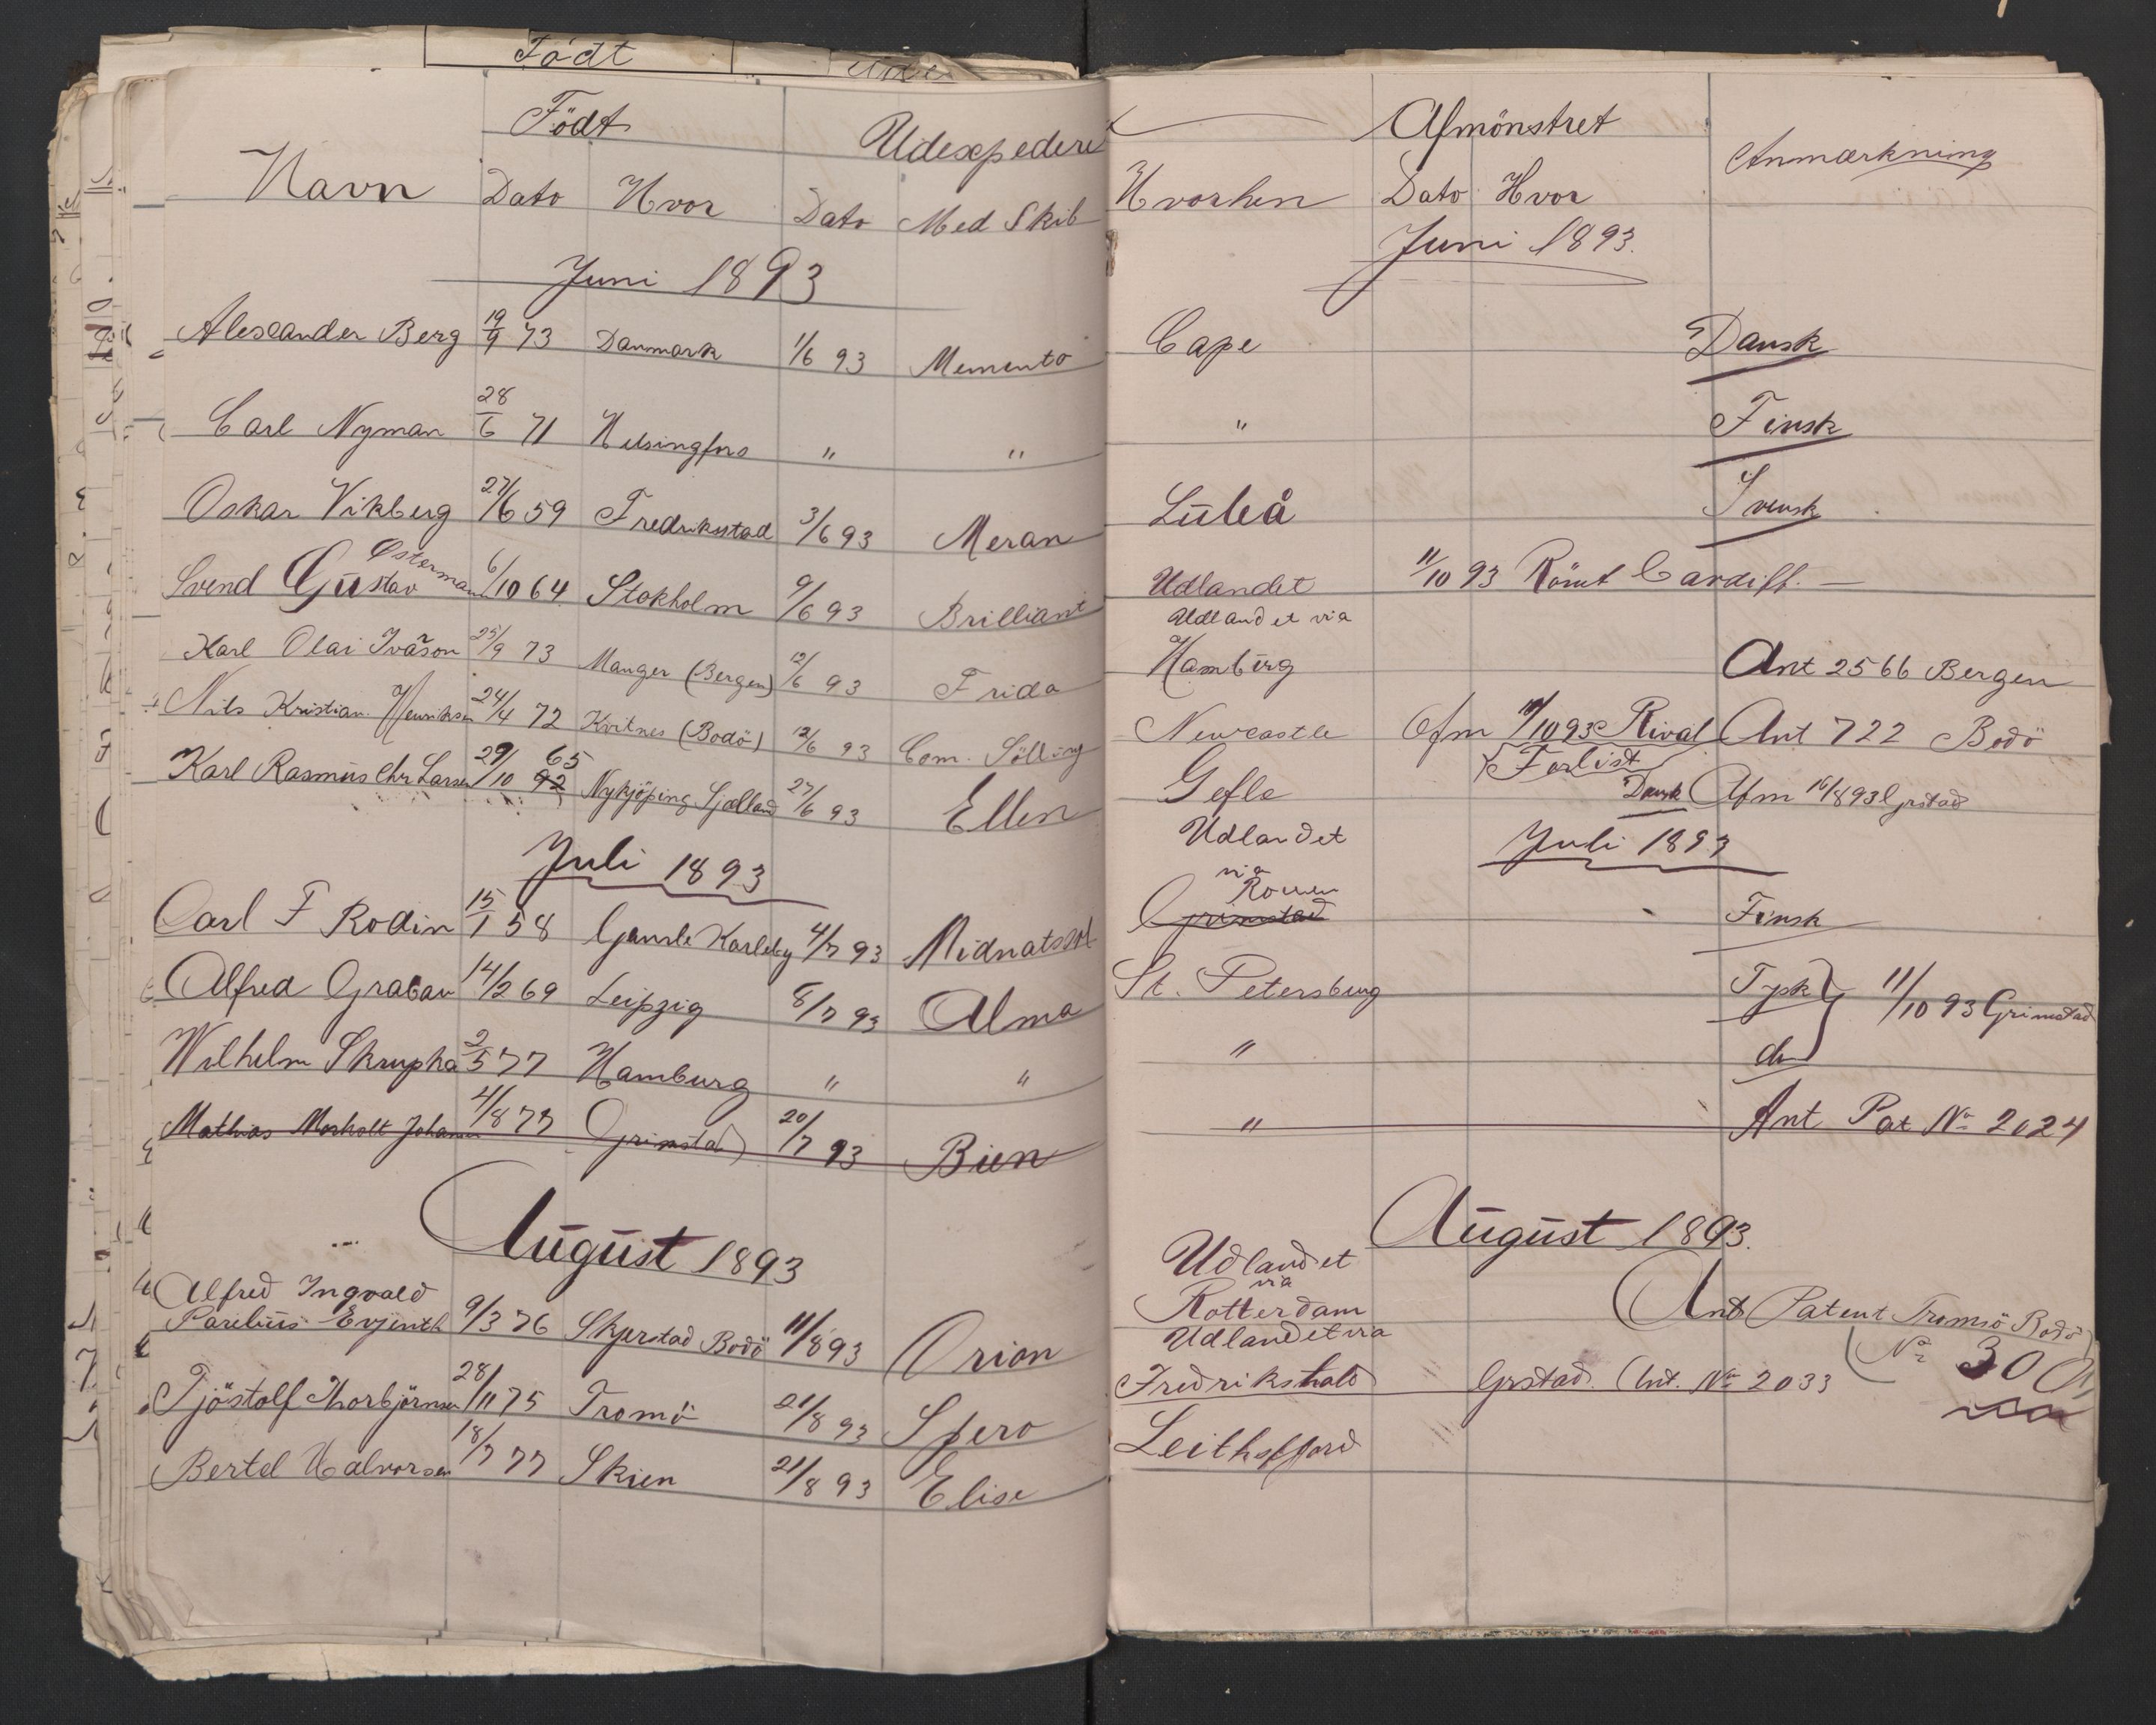 Födt
Födt
Udexpederet
Navn Dato Hvor Dato Med Skib
Juni 1893
Alexander Berg 19/9 73 Danmark 1/6 93 Memento
Carl Nyman 28/6 71 Helsingfors " "
Oskar Vikberg 27/6 59 Fredriksstad 3/6 93 Meran
Østerman
Svend Gustav 6/10 64 Stokholm 9/6 93 Brilliant
Karl Olai Ivason 25/9 73 Manger (Bergen) 12/6 93 Frida
Nils Kristian Henriksen 24/4 72 Kvitnes (Bodö) 12/6 93 Com. Sölling
65
Karl Rasmus Chr Larsen 29/10 92 Nykjöping Sjælland 27/6 93 Ellen
Juli 1893
Carl F Rodin 15/1 58 Gamle Karleby 4/7 93 Midnatsol
Alfred Grabau 14/2 69 Leipzig 8/7 93 Alma
Wilhelm Skrupka 2/5 77 Hamburg " "
Mathias Morholt Johansen 4/8 77 Grimstad 20/7 93 Bien
August 1893
Alfred Ingvald
Parelius Evjenth 9/3 76 Skjerstad Bodö 11/8 93 Orion
Tjöstolf Thorbjörnsen 28/11 75 Tromö 21/8 93 Spero
Bertel Halvorsen 18/7 77 Skien 21/8 93 Elise
Afmönstret
Anmærkning
Hvorhen Dato Hvor
Juni 1893.
Cape Dansk
" Finsk
Luleå Svensk
Udlandet 11/10 93 Römt Cardiff. —
Udlandet via
Hamburg Ant 2566 Bergen
Newcastle Afm 10/10 93 Rival Ant 722 Bodö
Forlist
Gefle Dansk Afm 16/8 93 Grstad
Udlandet
Juli 1893
via
Rouen
Grimstad Finsk
St. Petersburg Tysk } 11/10 93 Grimstad
" do
" Ant Pat No 2024
August 1893.
Udlandet
via
Rotterdam Ant Patent Tromsö Bodö
Udlandet via No 300
Fredrikshald Grstad. Ant. No 2033
Leithsfjord